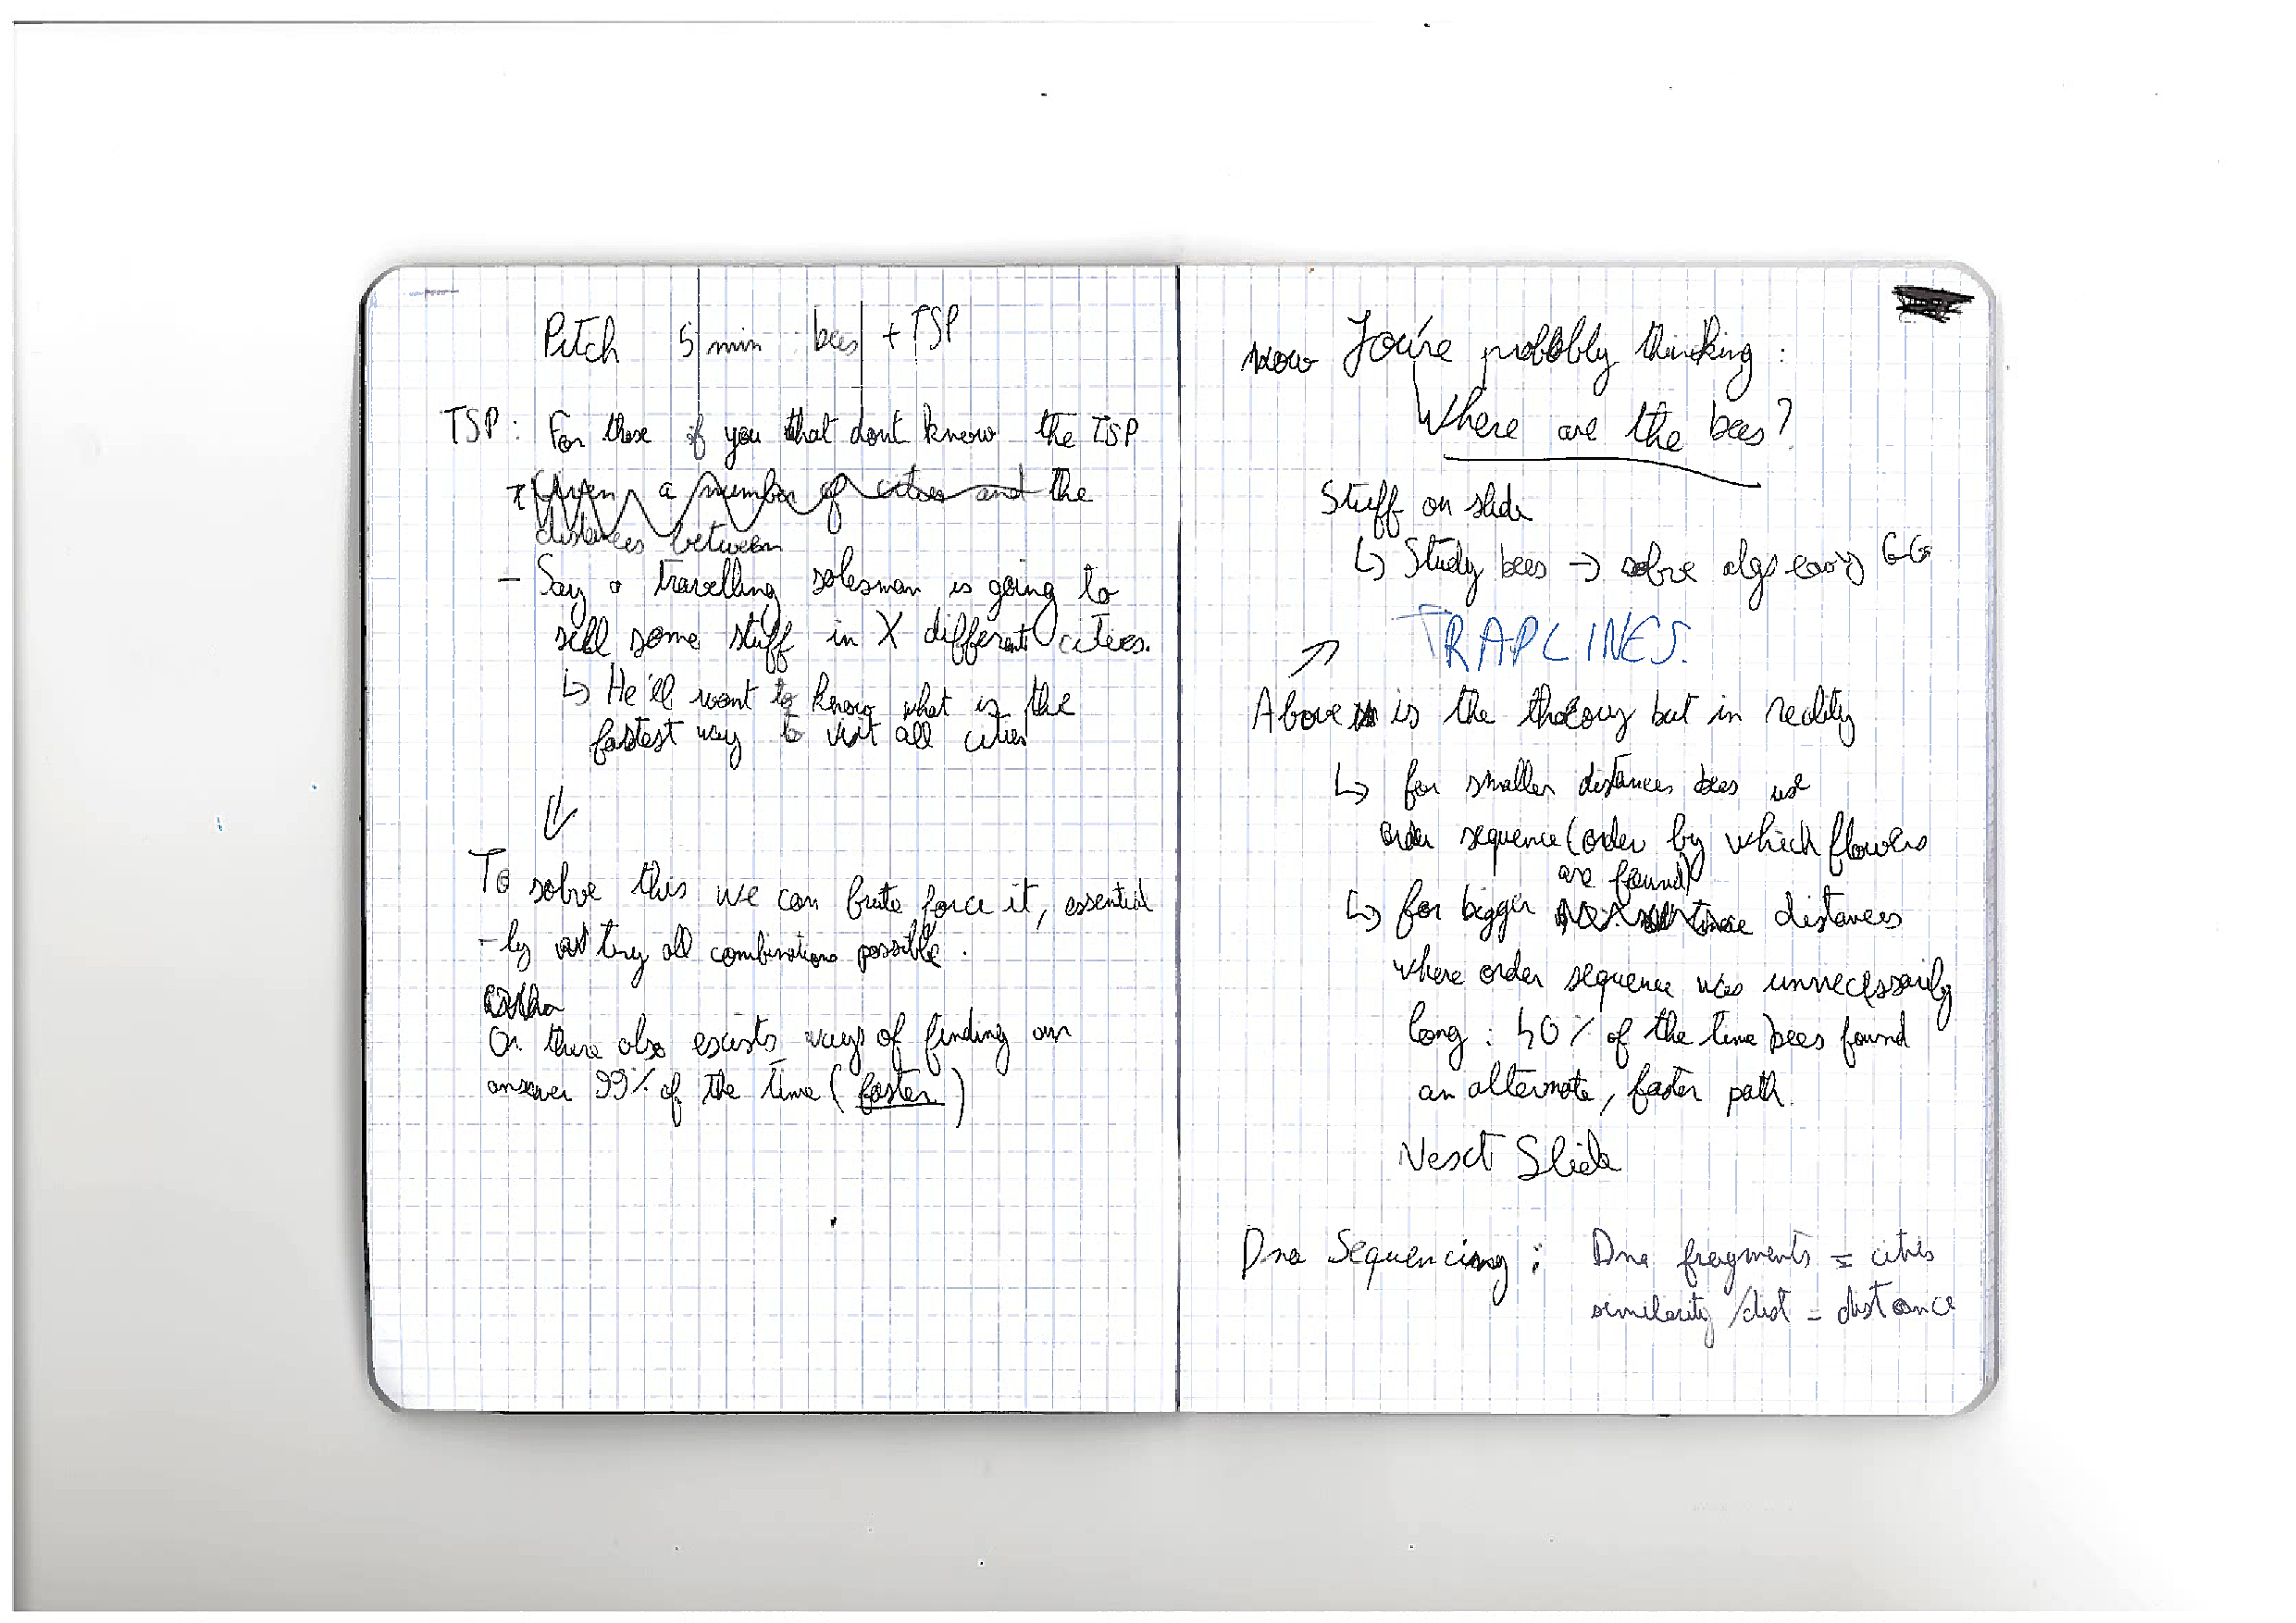 Pitch 5 min bees + TSP
TSP: For those of you that dont know the TSP
Given a number of cities and the
distances between
- Say a travelling salesman is going to
sell some stuff in X different cities.
↳ He'll want to know what is the
fastest way to visit all cities
⇓
To solve this we can brute force it, essential
-ly try all combinations possible.
Or there also exists ways of finding an
answer 99% of the time (faster)
Now You're probbly thinking:
Where are the bees?
Stuff on slide
↳ Study bees → solve algs easy GG
TRAPLINES.
↗
Above is the theory but in reality
↳ for smaller distances bees use
order sequence (order by which flowers
are found)
↳ for bigger distances
where order sequence was unnecessarily
long: 40% of the time bees found
an alternate, faster path.
Next Slide
Dna Sequencing: Dna fragments = cities
similarity/dist = distance